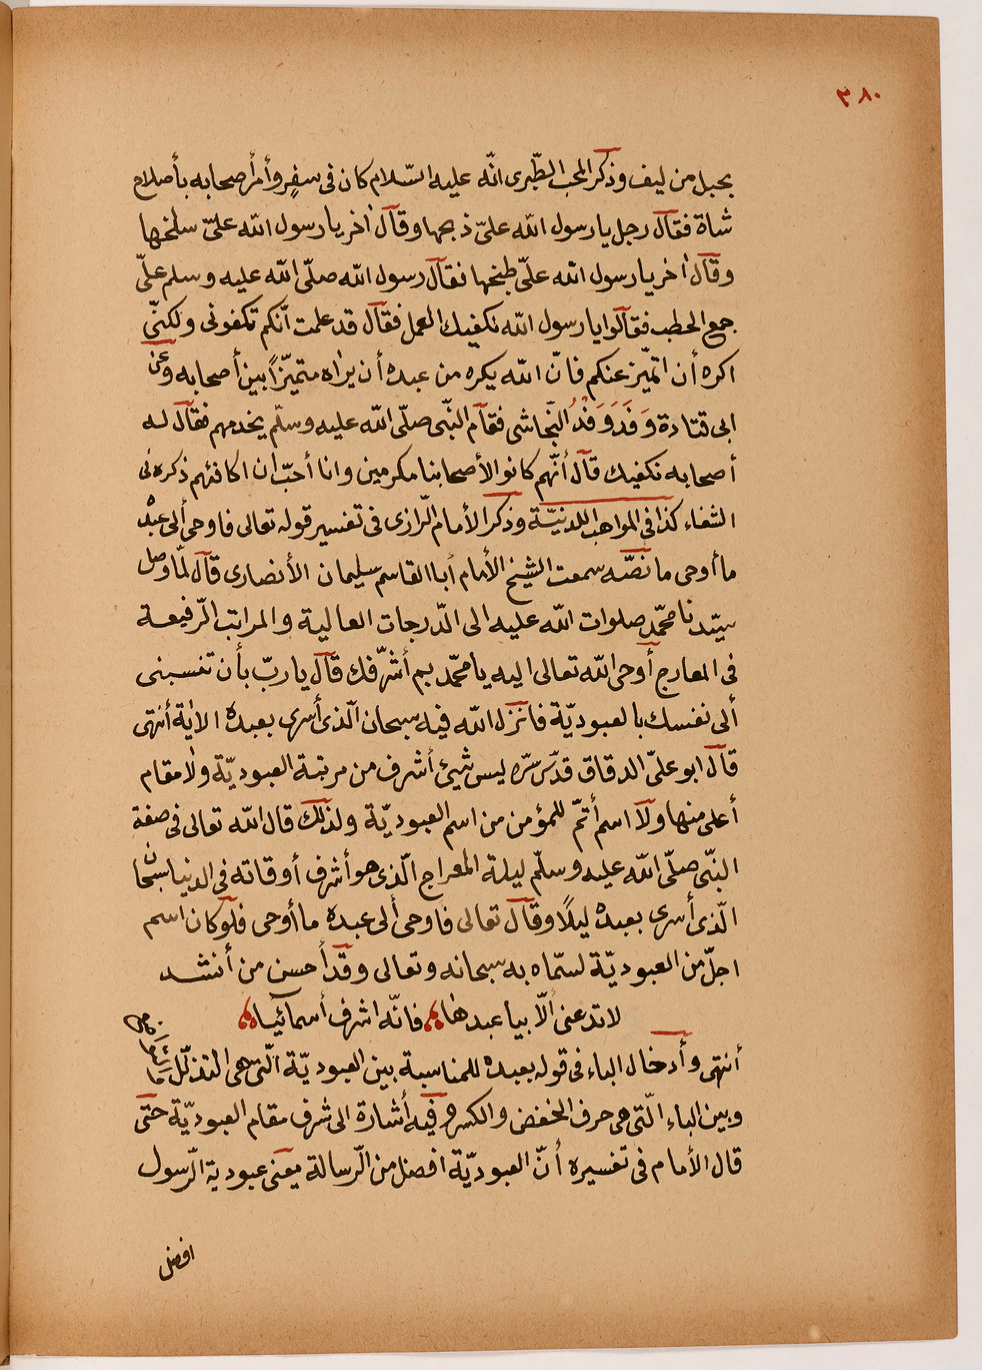 ٣٨٠
بحبل من ليف وذكر المحب الطّبرى انّه عليه السّلام كان فى سفرٍ وأمر أصحابه بأصلاح
شاة فقال رجل يا رسول الله علىّ ذبحها وقال أخر يا رسول الله علىّ سلخها
وقال أخر يا رسول الله علىّ طبخها فقال رسول الله صلّى الله عليه وسلم علىّ
جمع الحطب فقالوا يا رسول الله نكفيك العمل فقال قد علمت أنّكم تكفونى ولكنّى
اكره أن اتميّز عنكم فانّ الله يكره من عبده أن يراه متميّزاً بين أصحابه وعن
ابى قتادة وَفَدَ وَفْدُ النّجاشى فقام النّبى صلّى الله عليه وسلّم يخدمهم فقال له
أصحابه نكفيك قال أنّهم كانوا لأصحابنا مكرمين وانا أحبّ ان اكافئهم ذكره فى
الشفاء كذا فى المواهب اللدنيّة وذكر الأمام الرّازى فى تفسير قوله تعالى فاوحى ألى عبده
ما أوحى ما نصّه سمعت الشيخ الأمام أبا القاسم سليمان الأنصارى قال لمّا وصل
سيّدنا محمّد صلوات الله عليه الى الدّرجات العالية والمراتب الرّفيعة
فى المعارج أوحى الله تعالى اليه يا محمّد بم أشرّفك قال يا ربّ بأن تنسبنى
ألى نفسك بالعبوديّة فانزل الله فيه سبحان الّذى أسرى بعبده الاية أنتهى
قال ابو علىّ الدقاق قدّس سّره ليس شيئ أشرف من مرتبة العبوديّة ولا مقام
أعلى منها ولا اسم أتمّ للمؤمن من اسم العبوديّة ولذلك قال الله تعالى فى صفة
النّبى صلّى الله عليه وسلّم ليلة المعراج الّذى هو أشرف أوقاته فى الدنيا سبحان
الّذى أسرى بعبده ليلًا وقال تعالى فاوحى ألى عبده ما أوحى فلو كان اسم
اجلّ من العبوديّة لسمّاه به سبحانه وتعالى وقد أحسن من أنشد
لا تدعنى الّا بيا عبدها فانّه اشرف أسمائيا
أنتهى وأدخال الباء فى قوله بعبده للمناسبة بين العبوديّة الّتى هى التذلّل
وبين الباء الّتى هى حرف الخفض والكسر وفيه أشارة الى شرف مقام العبوديّة حتّى
قال الأمام فى تفسيره أنّ العبوديّة افضل من الرّسالة يعنى عبودية الرّسول
افضل